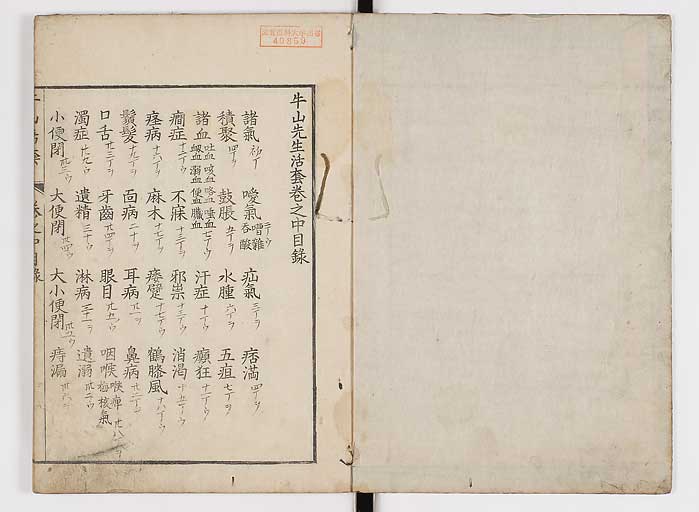 牛山先生活套卷之中目錄
諸氣 初丁 噯氣 嘈雜 吞酸 二丁ウ 疝氣 三丁ヲ 痞滿 四丁ヲ
積聚 四丁ウ 鼓脹 五丁ヲ 水腫 六丁ヲ 五疸 七丁ヲ
諸血 吐血 咳血 咯血 嗑血 衂血 溺血 便血 臟血 七丁ウ 汗症 十一丁ウ 癲狂 十二丁ウ
癇症 十二丁ウ 不寐 十三丁ヲ 邪祟 十三丁ウ 消渴 十五丁ウ
痓病 十六丁ウ 麻木 十七丁ヲ 痿躄 十七丁ウ 鶴膝風 十八丁ウ
鬚髮 十九丁ヲ 面病 二十ヲ 耳病 廿一ヲ 鼻病 廿二丁ヲ
口舌 廿三丁ウ 牙齒 廿四丁ヲ 眼目 廿五ウ 咽喉 喉痺 梅核氣 廿八丁ヲ
濁症 廿九ウ 遺精 三十ウ 淋病 三十一ヲ 遺溺 卅二ウ
小便閉 卅三ウ 大便閉 卅四ウ 大小便閉 卅五ウ 痔漏 卅六ヲ
49859